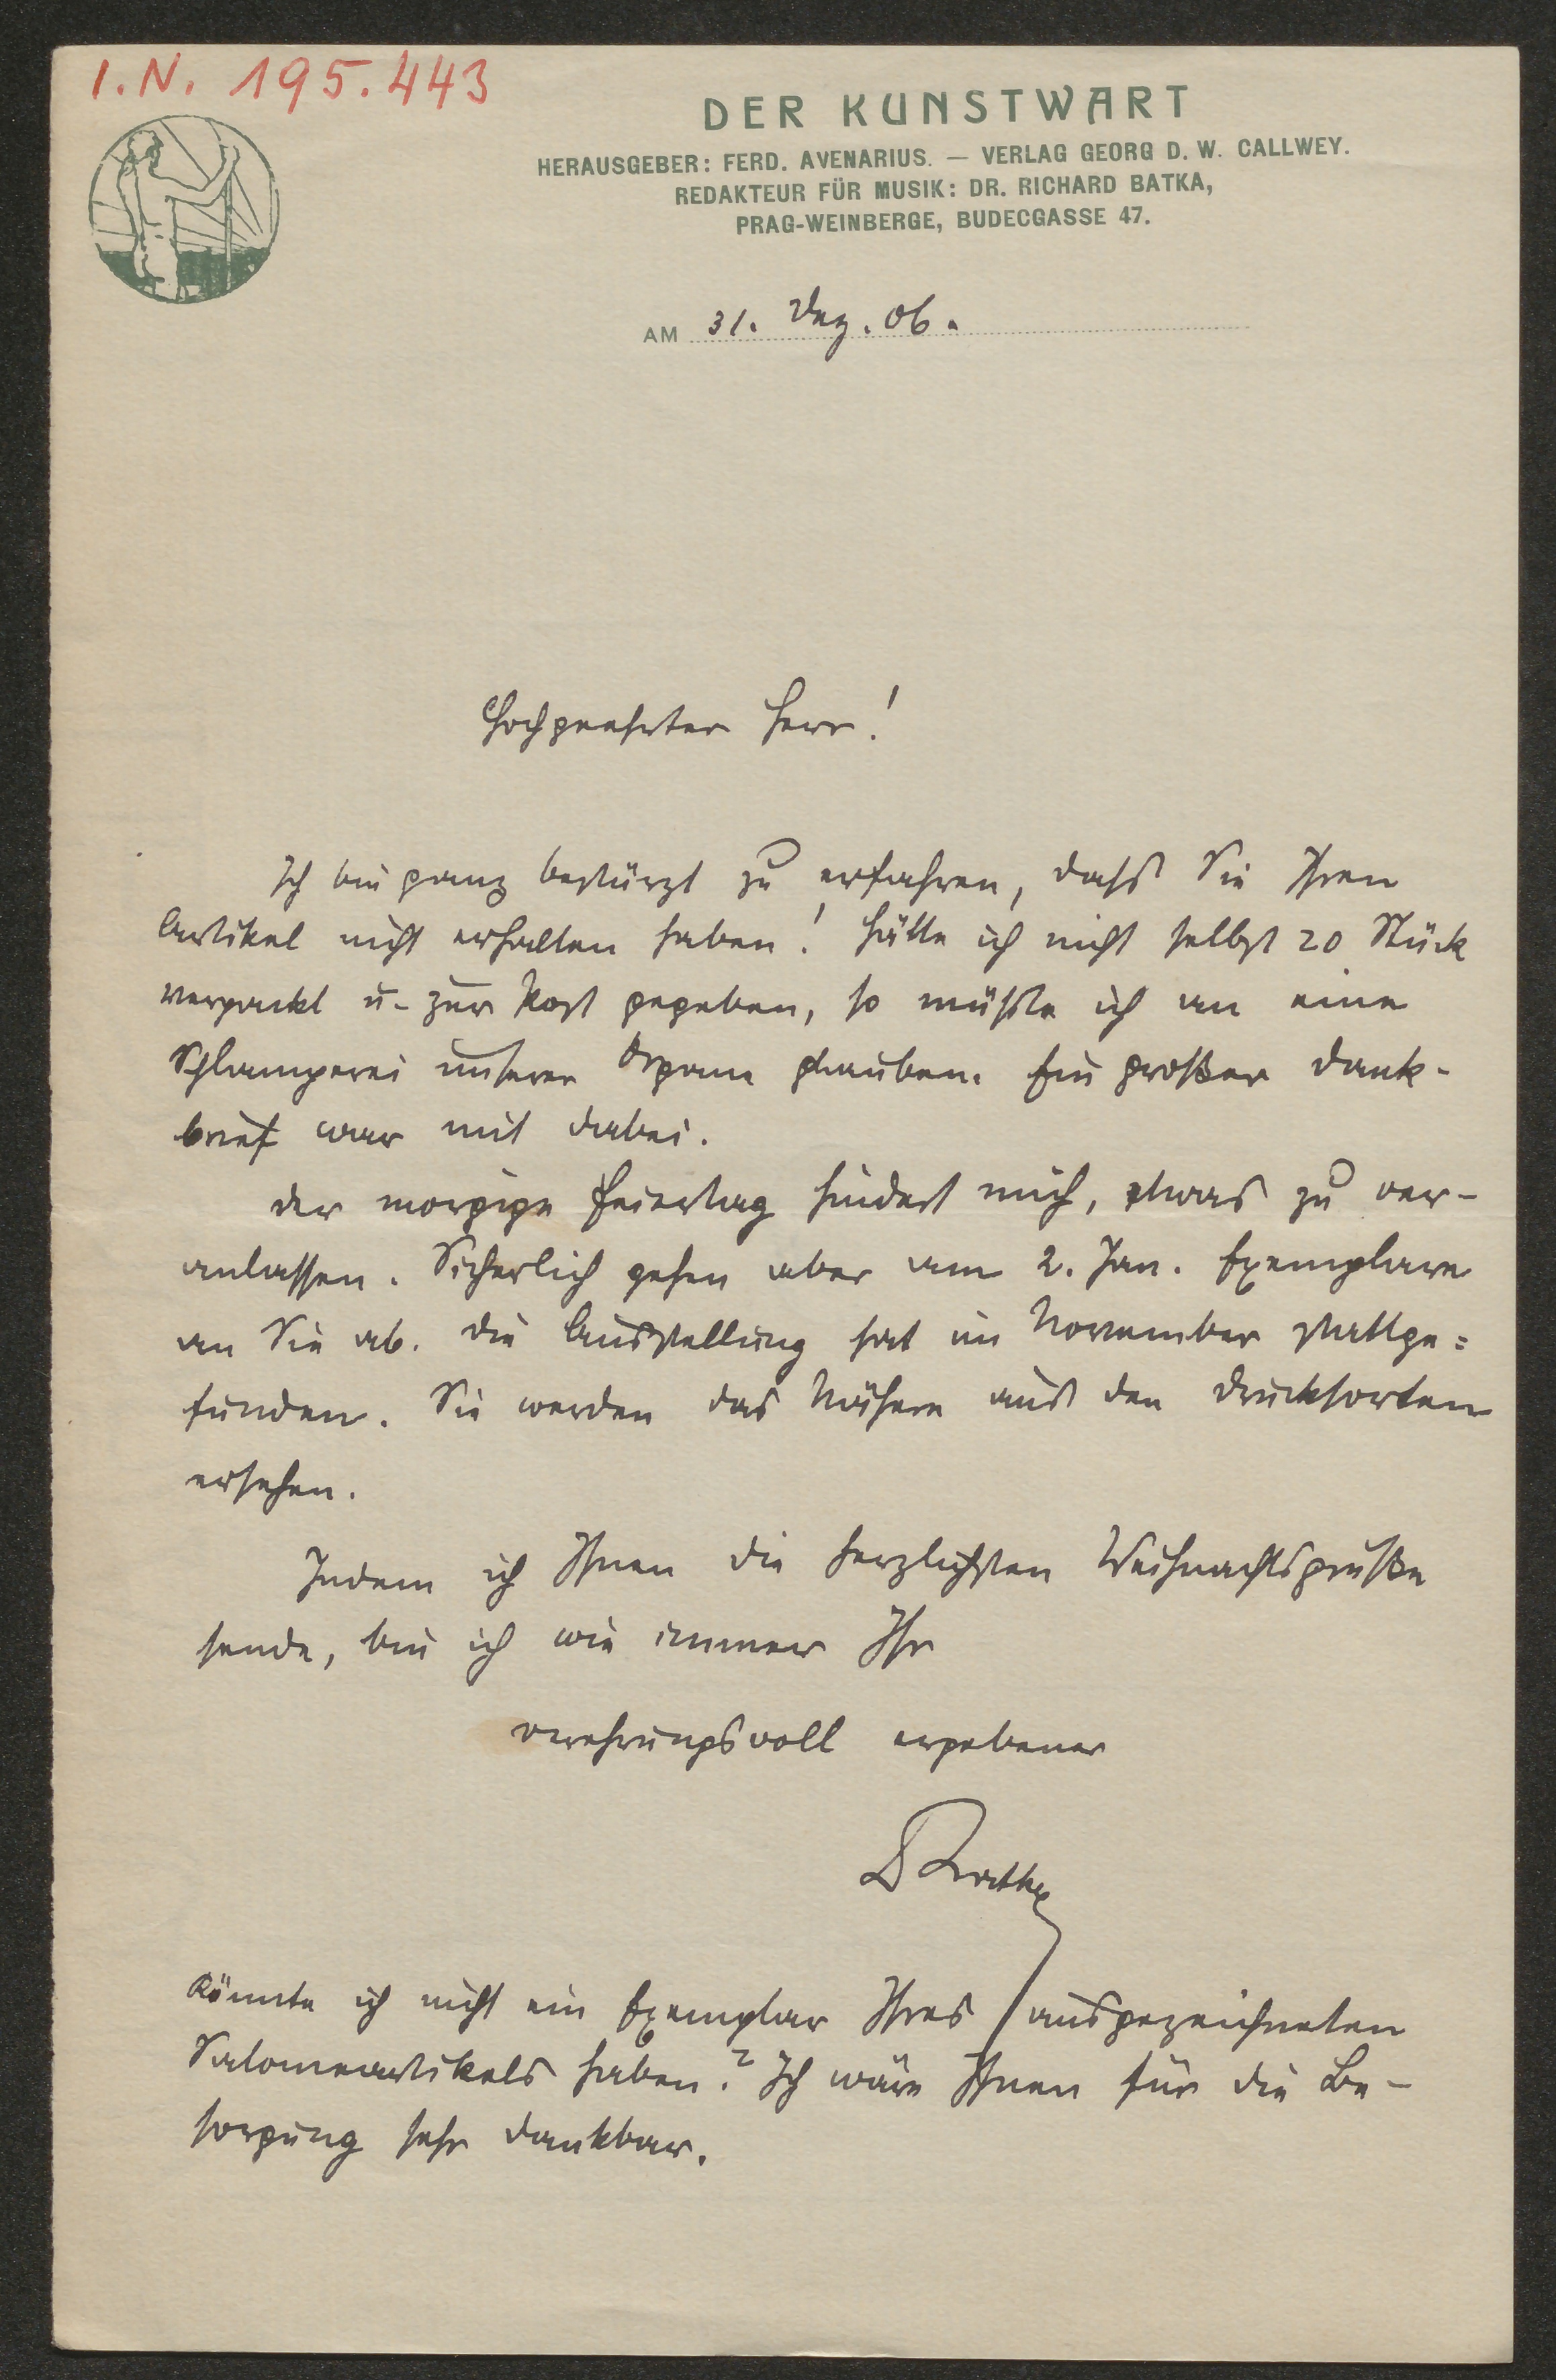 I.N. 195.443
DER KUNSTWART
HERAUSGEBER: FERD. AVENARIUS. — VERLAG GEORG D. W. CALLWEY.
REDAKTEUR FÜR MUSIK: DR. RICHARD BATKA,
PRAG-WEINBERGE, BUDECGASSE 47.
AM 31. Dez. 06.
Hochgeehrter Herr!
Ich bin ganz bestürzt zu erfahren, dass Sie Ihren
Artikel nicht erhalten haben! Hätte ich nicht selbst 20 Stück
verpackt u. zur Post gegeben, so müsste ich an eine
Schlamperei unserer Organe glauben. Ein großer Dank-
brief war mit dabei.
Der morgige Feiertag hindert mich, etwas zu ver-
anlassen. Sicherlich gehen aber am 2. Jan. Exemplare
an Sie ab. Die Ausstellung hat im November stattge=
funden. Sie werden das Nähere aus den Drucksorten
ersehen.
Indem ich Ihnen die herzlichsten Weihnachtsgrüße
sende, bin ich wie immer Ihr
verehrungsvoll ergebener
DRBatka
Könnte ich nicht ein Exemplar Ihres ausgezeichneten
Salomeartikels haben? Ich wäre Ihnen für die Be-
sorgung sehr dankbar.